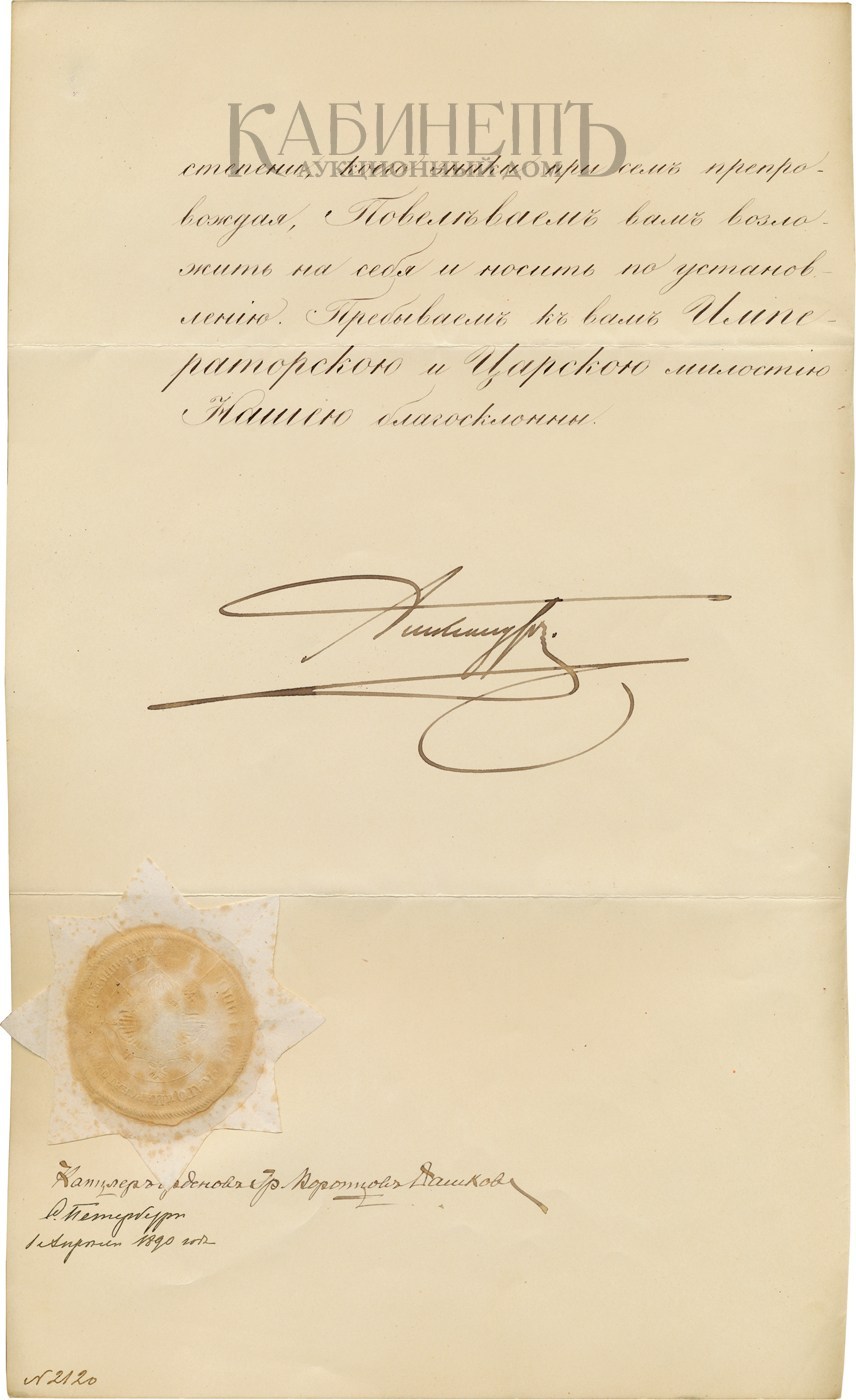 КАБИНЕТЪ
АУКЦИОННЫЙ ДОМ
степени, коего знаки при семъ препро-
вождая, Повелѣваемъ вамъ возло-
жить на себя и носить по установ-
ленію. Пребываемъ къ вамъ Импе-
раторскою и Царскою милостію
Нашею благосклонны.
Александръ.
Канцлеръ орденовъ Гр. Воронцовъ Дашковъ
С. Петербургъ
1 Апрѣля 1890 года
N 2120